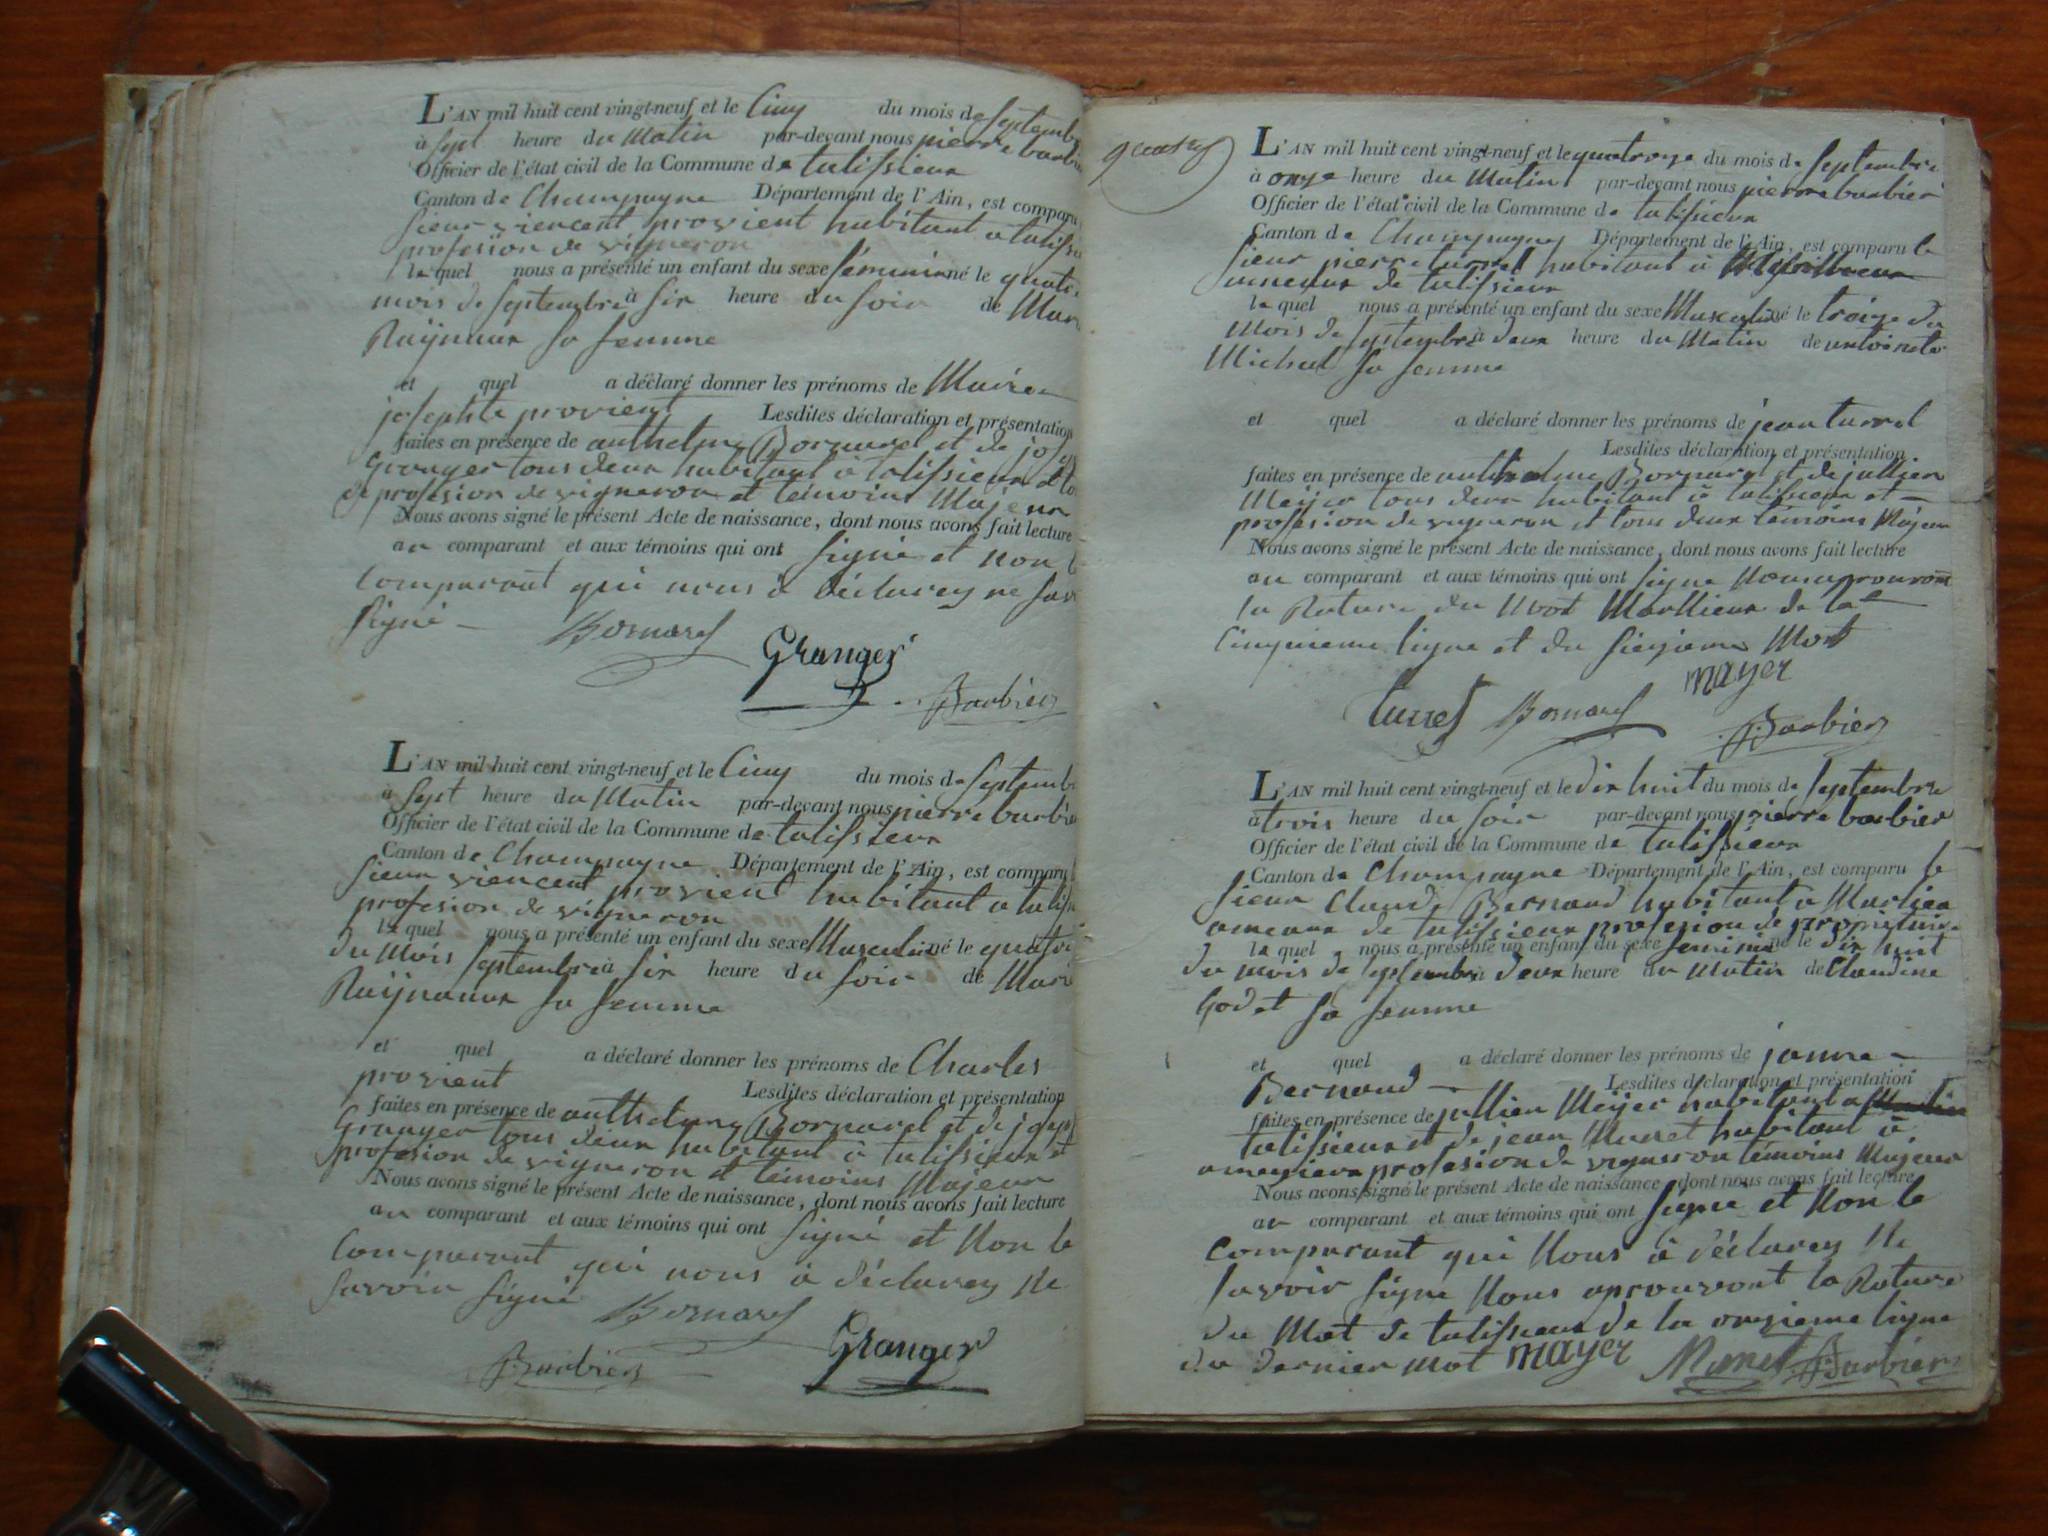 L'AN mil huit cent vingt-neuf et le Cinq du mois de Septembre
à Sept heure du Matin par-devant nous pierre barbier
Officier de l'état civil de la Commune de talissieux
Canton de Champagne Département de l'Ain, est comparu
Sieur viencent provient habitant a taliss
profession de vigneron
le quel nous a présenté un enfant du sexe féminin né le quatre
mois de Septembre à Six heure du Soir de Mari
Raÿnaux Sa femme
et quel a déclaré donner les prénoms de Marie
josephte provient Lesdites déclaration et présentation
faites en présence de anthelme Bornarel et de jose
Granger tous deux habitant à talissieux et
de profesion de vigneron et témoins Majeur
Nous avons signé le présent Acte de naissance, dont nous avons fait lecture
au comparant et aux témoins qui ont Signé et Non le
Comparant qui nous à déclarey ne Sav
Signé
Bornarel
Granger
Barbier
L'AN mil huit cent vingt-neuf et le Cinq du mois de Septemb
à Sept heure du Matin par-devant nous pierre barbie
Officier de l'état civil de la Commune de talissieux
Canton de Champagne Département de l'Ain, est comparu
Sieur viencent provient habitant a taliss
profesion de vigneron
le quel nous a présenté un enfant du sexe Masculin né le quatre
du Mois Septembre à Six heure du Soir de Mari
Raÿnaux Sa femme
et quel a déclaré donner les prénoms de Charles
provient Lesdites déclaration et présentation
faites en présence de anthelme Bornarel et de josep
Granger tous deux habitant à talissieux et
profesion de vigneron et témoins Majeur
Nous avons signé le présent Acte de naissance, dont nous avons fait lecture
au comparant et aux témoins qui ont Signé et Non le
Comparant qui nous à déclarey Ne
Savoir Signé
Bornarel
Barbier
Granger
L'AN mil huit cent vingt-neuf et le quatroze du mois de Septembre
à onze heure du Matin par-devant nous pierre barbier
Officier de l'état civil de la Commune de talissieux
Canton de Champagne Département de l'Ain, est comparu le
Sieur pierre turrel habitant à
de talissieux
le quel nous a présenté un enfant du sexe Masculin né le treize du
Mois de Septembre à deux heure du Matin de antoinete
Michal Sa femme
et quel a déclaré donner les prénoms de jean turrel
Lesdites déclaration et présentation
faites en présence de anthelme Bornarel et de jullien
Meÿer tous deux habitant à talissieux et
profesion de vigneron et tous deux témoins Majeur
Nous avons signé le présent Acte de naissance, dont nous avons fait lecture
au comparant et aux témoins qui ont Signé Nous aprouvont
la Rature du Mot de la
Cinquieme ligne et du Sizieme Mot
mayer
turrel Bornarel
Barbier
L'AN mil huit cent vingt-neuf et le dix huit du mois de Septembre
à trois heure du Soir par-devant nous pierre barbier
Officier de l'état civil de la Commune de talissieux
Canton de Champagne Département de l'Ain, est comparu le
Sieur Claude Bernaud habitant a Marlieu
ameaux de talissieux profesion de propriétaire
le quel nous a présenté un enfant du sexe feminin né le dix huit
du mois de Septembre à deux heure du Matin de Claudine
Godet Sa femme
et quel a déclaré donner les prénoms de janne
Bernaud Lesdites déclaration et présentation
faites en présence de jullien Meÿer habitant a
talissieux et de jean Munet habitant à
profesion de vigneron témoins Majeur
Nous avons signé le présent Acte de naissance, dont nous avons fait lecture
au comparant et aux témoins qui ont Signé et Non le
Comparant qui Nous à déclarey Ne
Savoir Signe Nous aprouvont la Rature
du Mot de talissieux de la onzieme ligne
du dernier mot mayer Munet Barbier